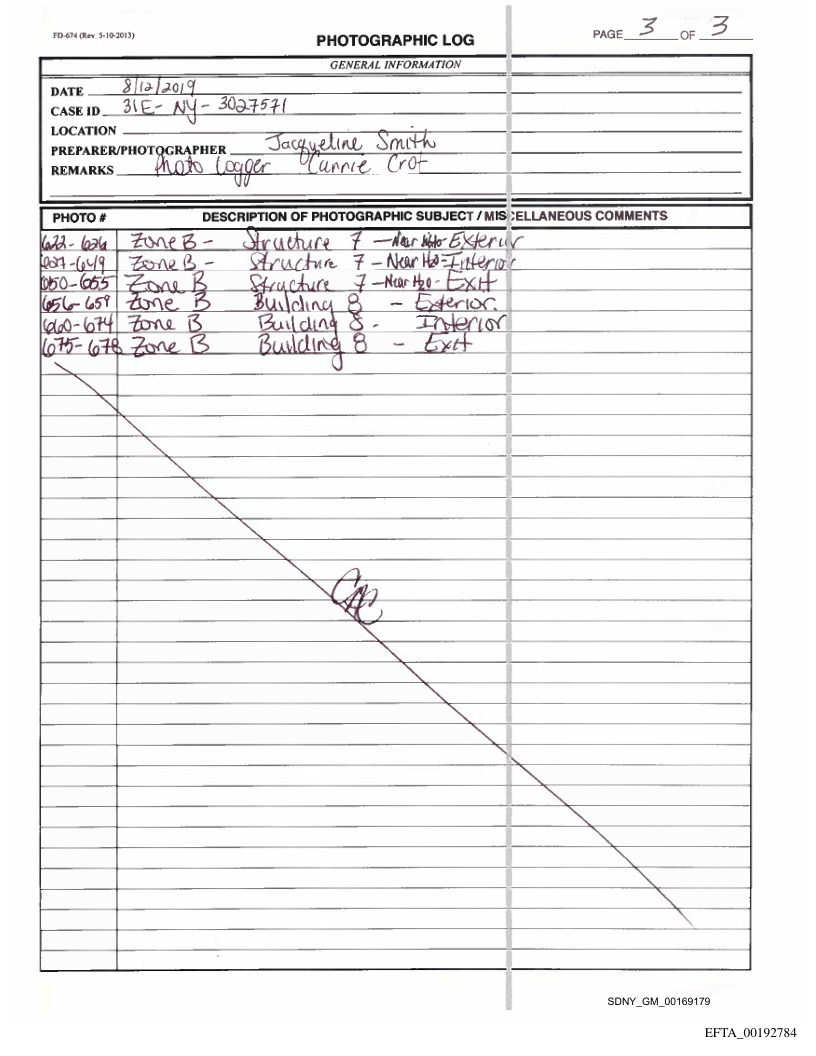 FD-674 (Rev. 5-10-2013)
PHOTOGRAPHIC LOG
PAGE 3 OF 3
GENERAL INFORMATION
DATE 8/12/2019
CASE ID 31E-NY-3027571
LOCATION
PREPARER/PHOTOGRAPHER Jacqueline Smith
REMARKS Photo Logger
PHOTO # DESCRIPTION OF PHOTOGRAPHIC SUBJECT / MISCELLANEOUS COMMENTS
622-626 Zone B - Structure 7 - Near Exterior
627-649 Zone B - Structure 7 - Near H2O - Interior
650-655 Zone B Structure 7 - Near H2O - Exit
656-659 Zone B Building 8 - Exterior.
660-674 Zone B Building 8 - Interior
675-678 Zone B Building 8 - Exit
CAC
SDNY_GM_00169179
EFTA_00192784